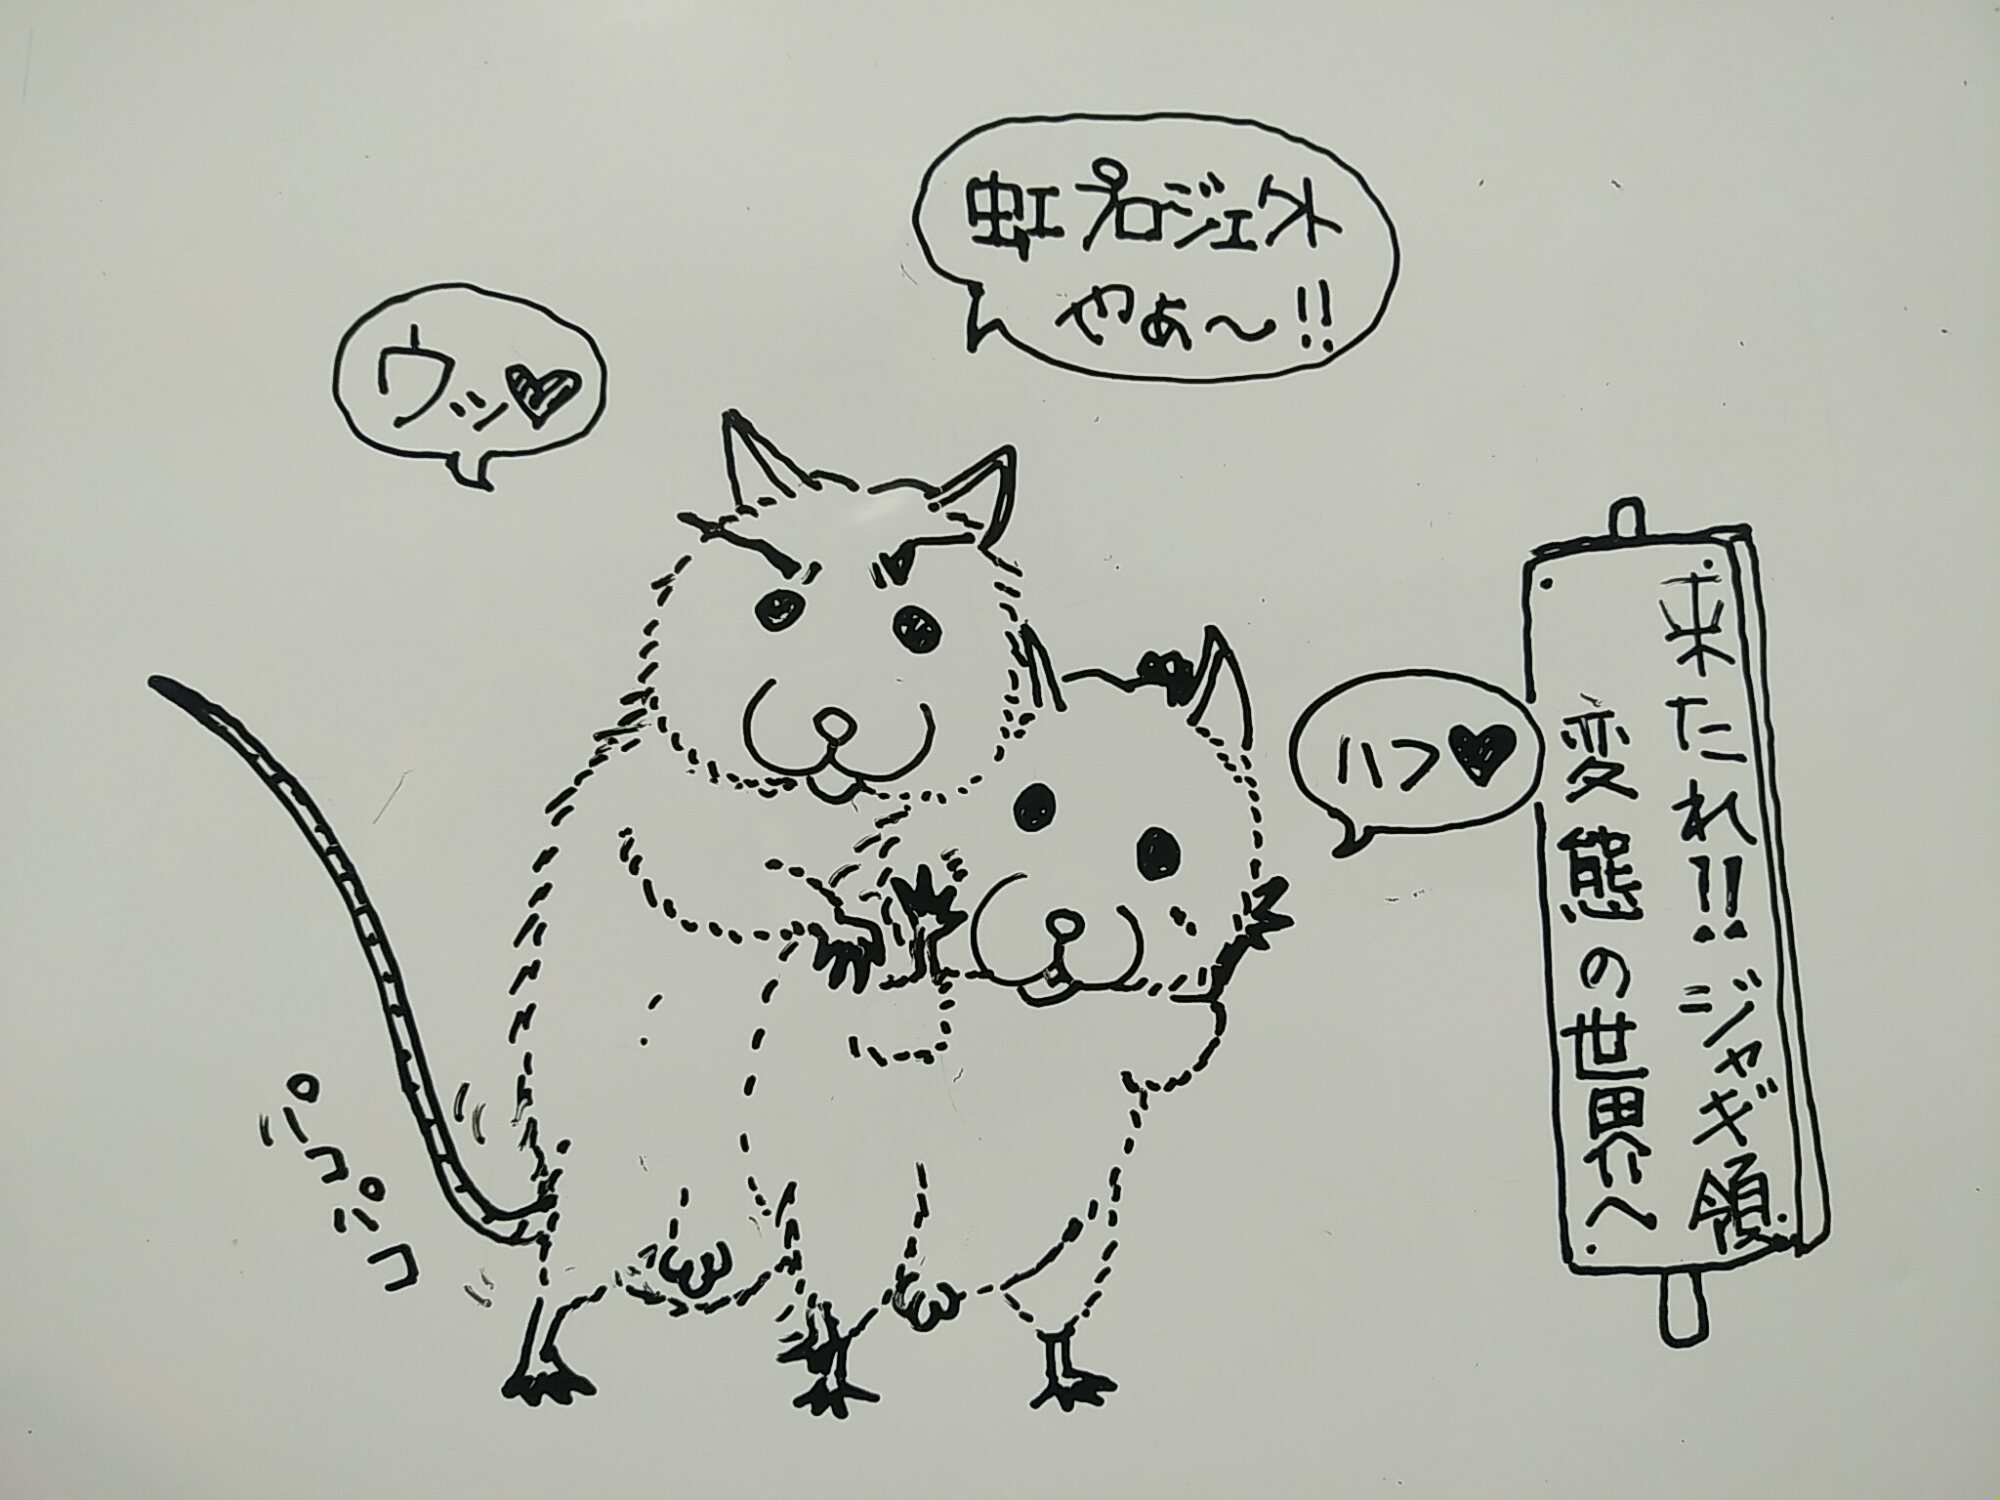 虹プロジェクト
やぁ〜!!
ウッ♥
ハフ♥
来たれ!!ジャギ領
変態の世界へ
パコ
パコ